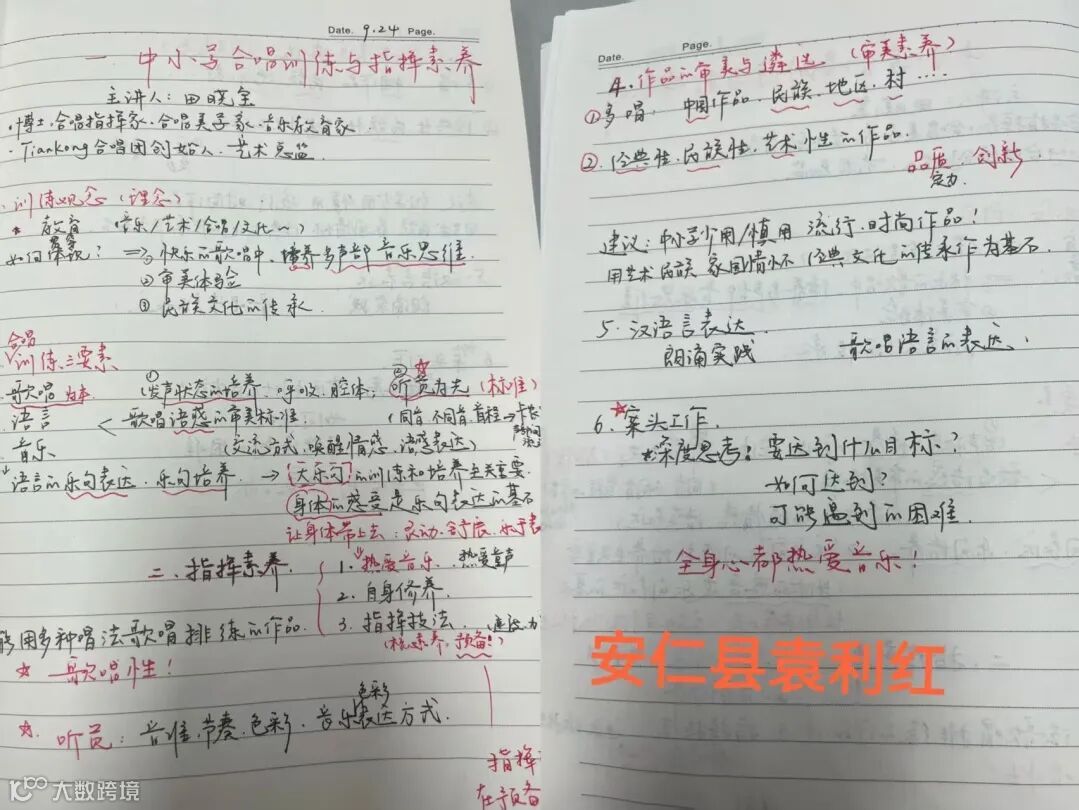 Date. 9.24 Page.
一 中小学合唱训练与指挥素养
主讲人：田晓宝
·博士·合唱指挥家·合唱美学家·音乐教育家
·Tiankong合唱团创始人·艺术总监
训练观念（理念）
* 教育 （音乐/艺术/合唱/文化～）
如何体现？ => 快乐的歌唱中，培养多声部音乐思维
②审美体验
③民族文化的传承
合唱
训练三要素
歌唱为本 ① （发声状态的培养，呼吸，腔体；② 听觉为先（标准）
语言 < 歌唱语感的审美标准 （同音、不同音、音程→
音乐 （交流方式，唤醒情感，语感表达）
语言的乐句表达，乐句培养 → 大乐句的训练和培养至关重要
身体的感受是乐句表达的基石
让身体带上去：灵动、舒展、乐于表
二、指挥素养
1. 热爱音乐 热爱童声
2. 自身修养
3. 指挥技法
能用多种唱法歌唱排练的作品
（核素养，预备！）
☆ 歌唱性！
色彩
☆ 听觉：音准、节奏、色彩、音乐表达方式．
指挥
在预备
Date. Page.
4. 作品的审美与遴选（审美素养）
①多唱，中国作品、民族、地区、村....
②、经典性、民族性、艺术性的作品．
品质 创新
定力
建议：中小学少用/慎用 流行、时尚作品！
用艺术民族 家国情怀 经典文化的传承作为基石
5. 汉语言表达
朗诵实践 歌唱语言的表达．
6. ☆案头工作
*深度思考：要达到什么目标？
如何达到？
可能遇到的困难．
全身心都热爱音乐！
安仁县袁利红
大数跨境